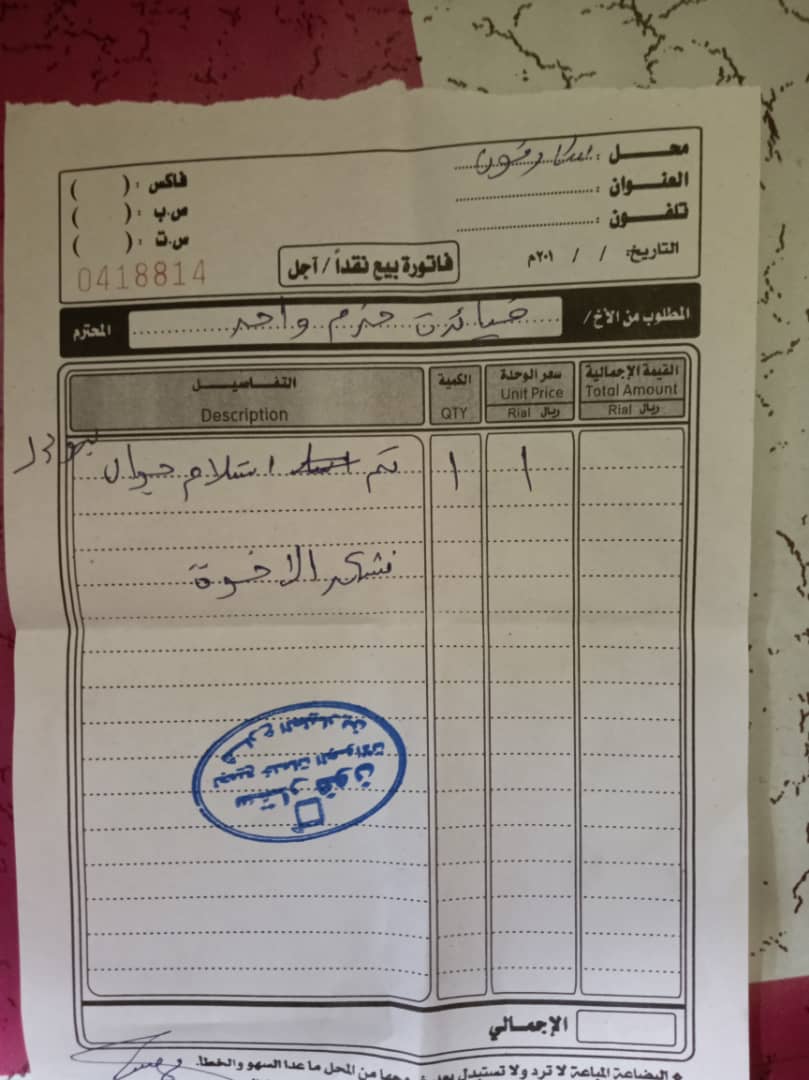 محل : ستار فون
فاكس : (     )
العنوان :
ص.ب : (     )
تلفون :
س.ت : (     )
التاريخ:   /   /   ٢٠١م
فاتورة بيع نقداً / آجل
0418814
المطلوب من الأخ/ واحد المحترم
القيمة الإجمالية
Total Amount
Rial ريال
سعر الوحدة
Unit Price
Rial ريال
الكمية
QTY
التفاصيل
Description
تم استلام جوال
1 1
نشكر الاخوة
شارع
لجميع خدمات الجوالات
ستار فون
الإجمالي
البضاعة المباعة لا ترد ولا تستبدل بعد خروجها من المحل ما عدا السهو والخطأ.